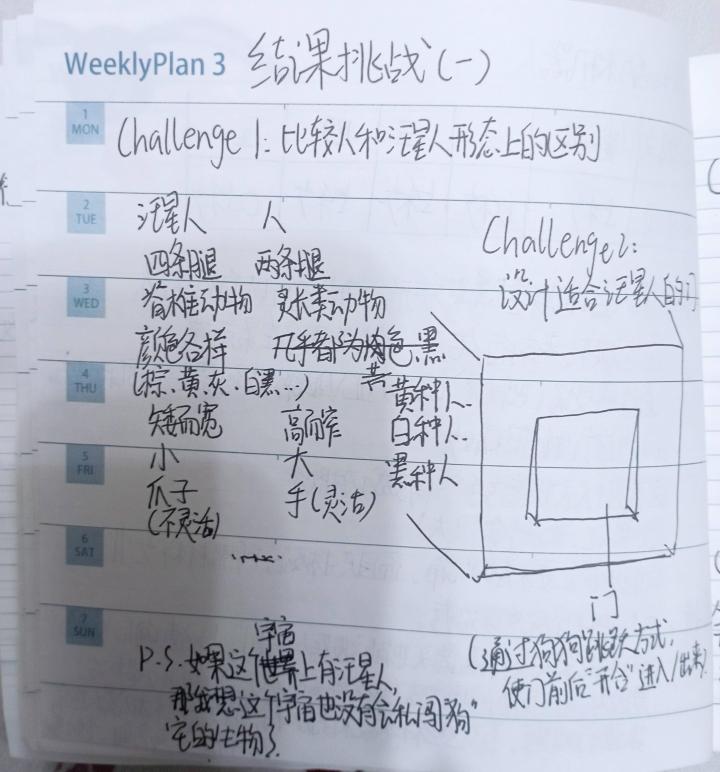 WeeklyPlan 3 结果挑战(一)
1
MON
Challenge 1: 比较人和汪星人形态上的区别
2
TUE
汪星人 人
四条腿 两条腿
Challenge2:
设计适合汪星人的门
3
WED
脊椎动物 灵长类动物
颜色各样 几乎都为肉色、黑
黄
4
THU
(棕、黄、灰、白黑…) 黄种人..
矮而宽 高而窄 白种人..
5
FRI
小 大 黑种人
爪子 手(灵活)
(不灵活)
6
SAT
......
门
7
SUN
(通过狗狗"跳跃"方式,
使门前后"开合"进入/出来)
宇宙
P.S.如果这个世界上有汪星人,
那我想这个宇宙也没有会私闯"狗"
宅的生物了.